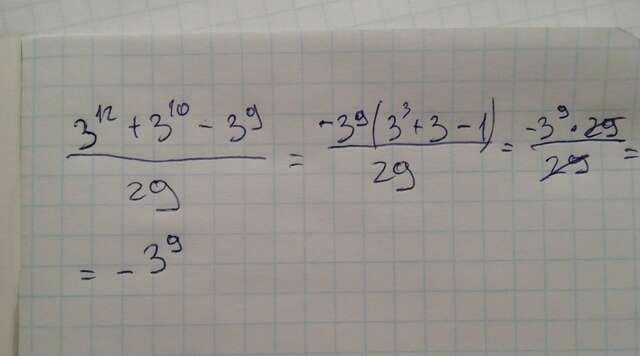 (3^12 + 3^10 - 3^9)/29 = -3^9(3^3 + 3 - 1)/29 = -3^9 · 29/29 =
= -3^9